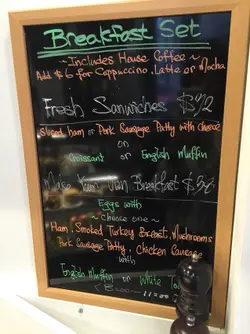 Breakfast Set
~ Includes House Coffee ~
Add $6 for Cappuccino, Latte or Mocha
Fresh Sanwiches $32
Sliced ham or Pork Sausage Patty with cheese
on
Croissant or English Muffin
Breakfast $38
Eggs with
~ Choose one ~
Ham, Smoked Turkey Breast, Mushrooms
Pork Sausage Patty, Chicken Sausage
with
English Muffin or White